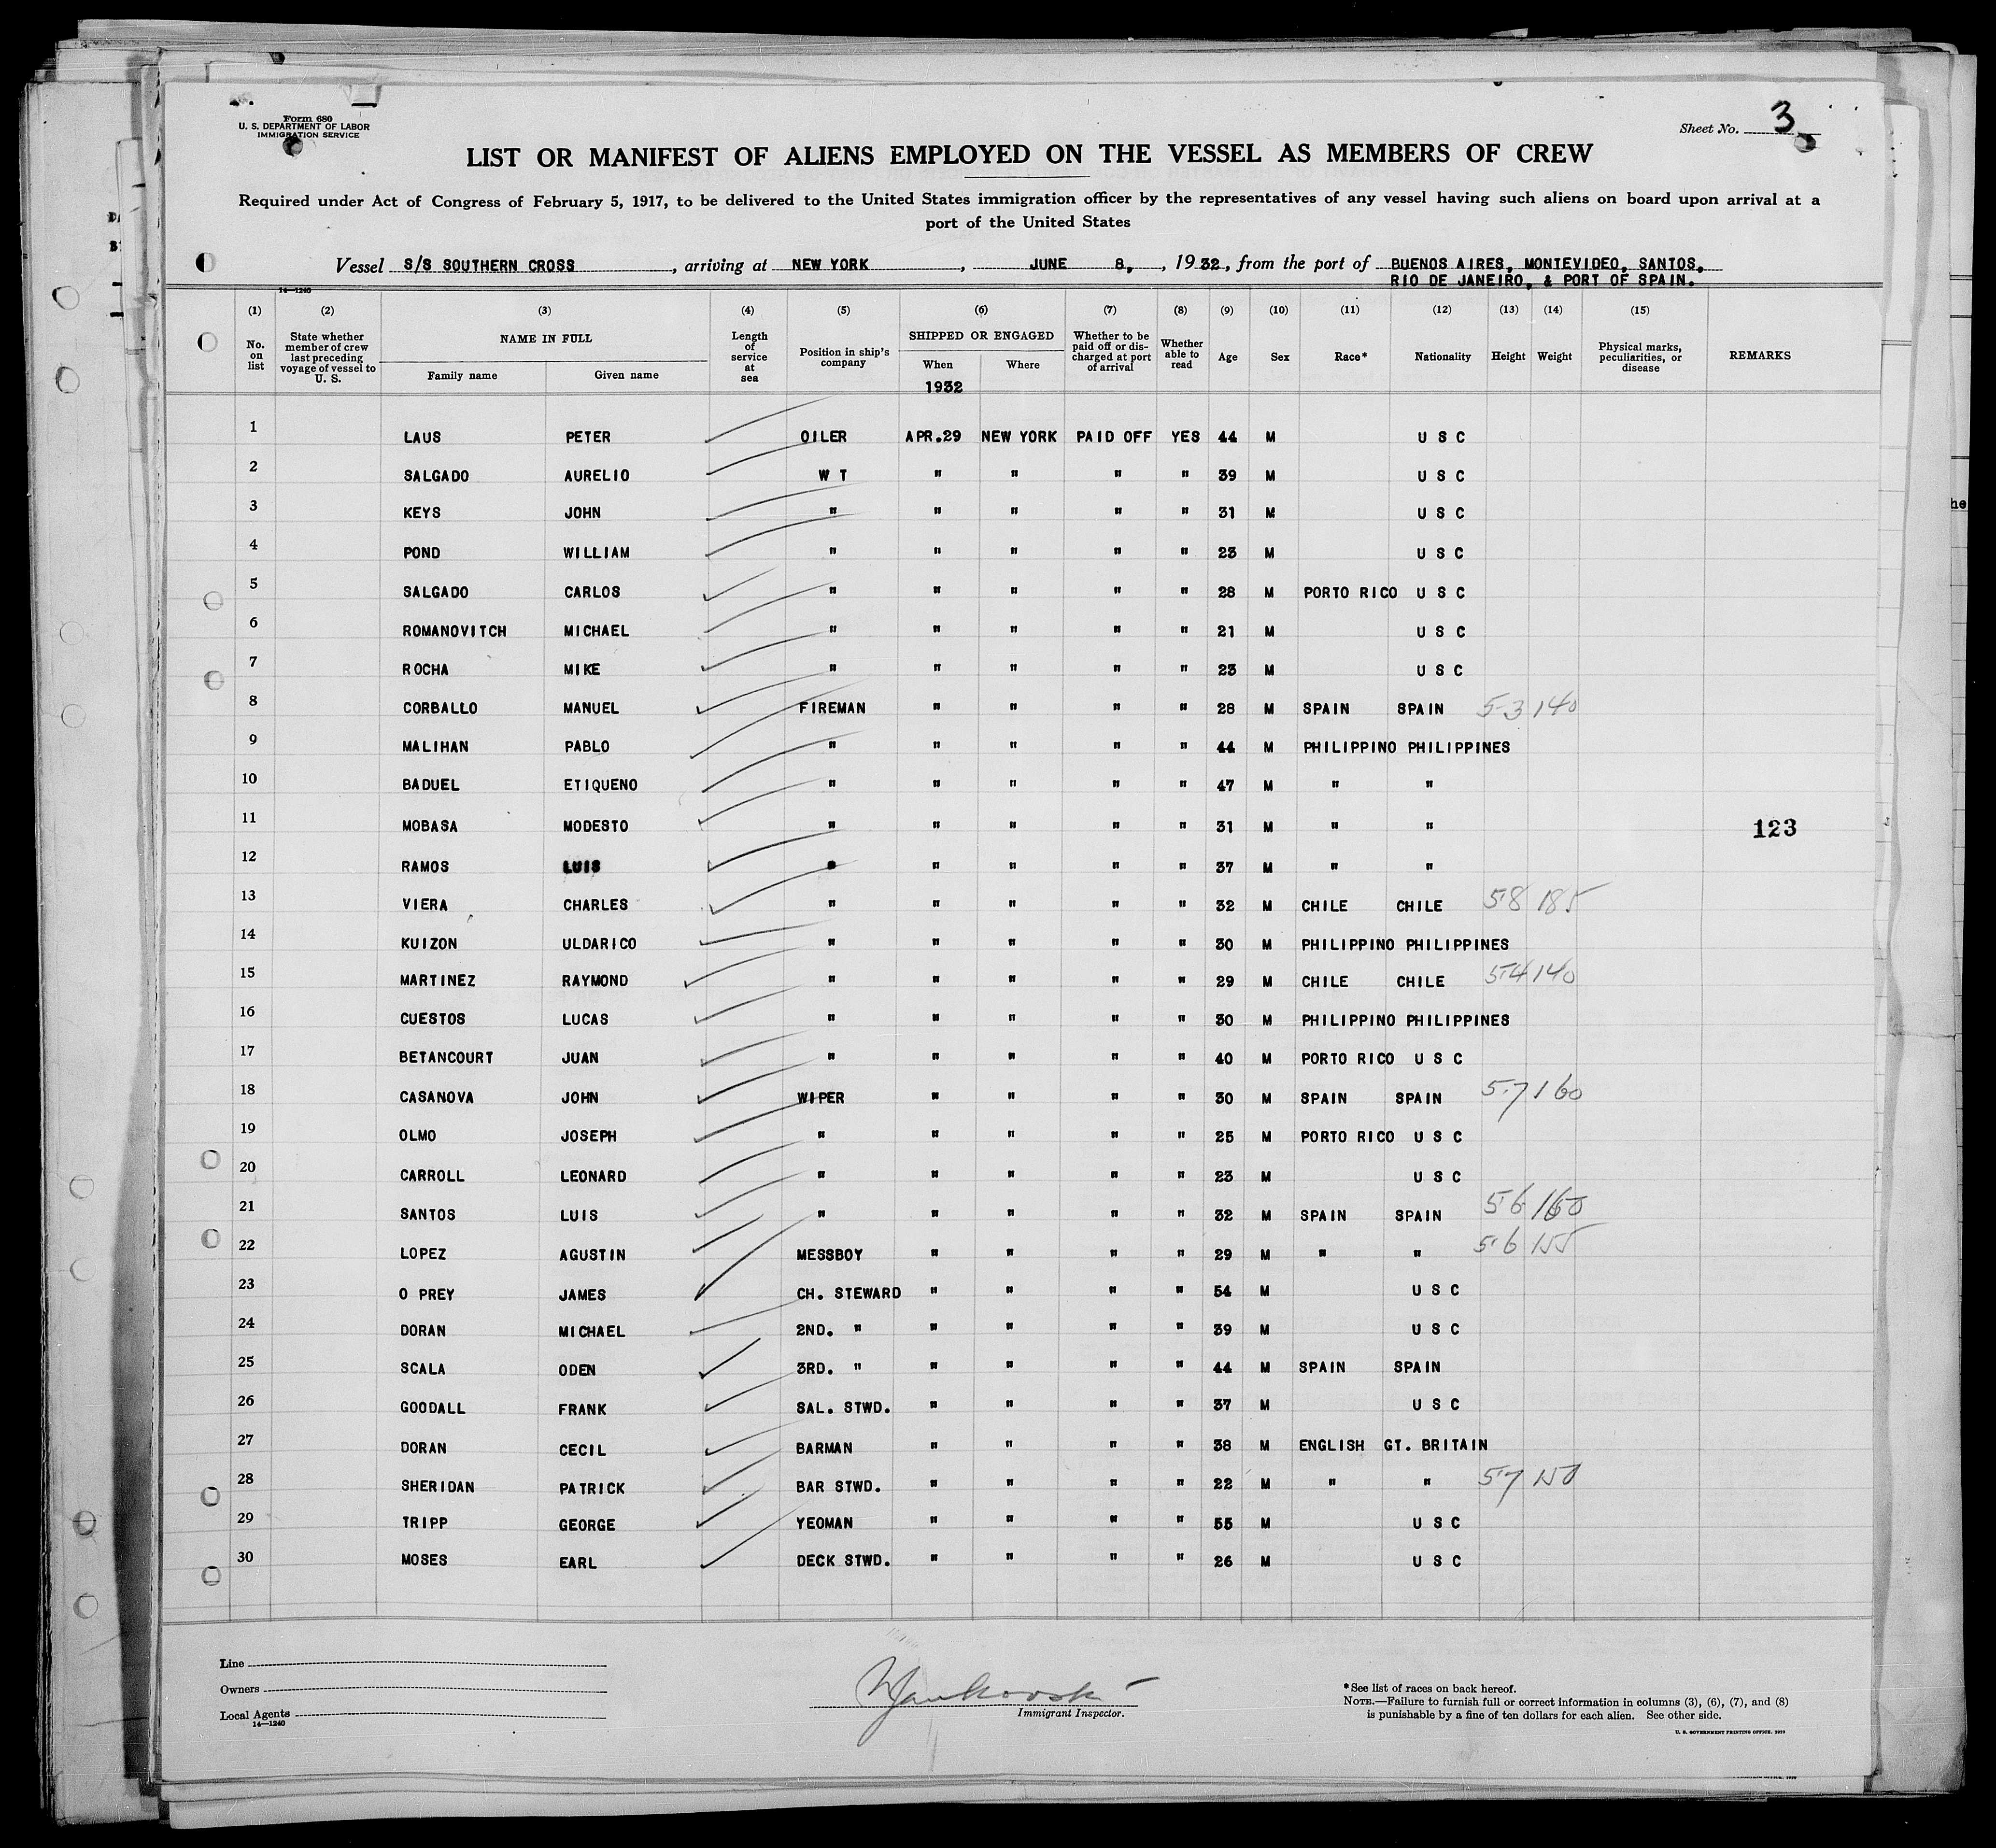 Form 680
U. S. DEPARTMENT OF LABOR
IMMIGRATION SERVICE
Sheet No. 3
LIST OR MANIFEST OF ALIENS EMPLOYED ON THE VESSEL AS MEMBERS OF CREW
Required under Act of Congress of February 5, 1917, to be delivered to the United States immigration officer by the representatives of any vessel having such aliens on board upon arrival at a
port of the United States
Vessel S/S SOUTHERN CROSS, arriving at NEW YORK, JUNE 8,, 1932, from the port of BUENOS AIRES, MONTEVIDEO, SANTOS,
RIO DE JANEIRO, & PORT OF SPAIN.
14—1240
(1) (2) (3) (4) (5) (6) (7) (8) (9) (10) (11) (12) (13) (14) (15)
No. on list State whether member of crew last preceding voyage of vessel to U. S. NAME IN FULL Family name Given name Length of service at sea Position in ship's company SHIPPED OR ENGAGED When Where Whether to be paid off or discharged at port of arrival Whether able to read Age Sex Race* Nationality Height Weight Physical marks, peculiarities, or disease REMARKS
1932
1 LAUS PETER OILER APR.29 NEW YORK PAID OFF YES 44 M U S C
2 SALGADO AURELIO W T " " " " 39 M U S C
3 KEYS JOHN " " " " " 31 M U S C
4 POND WILLIAM " " " " " 23 M U S C
5 SALGADO CARLOS " " " " " 28 M PORTO RICO U S C
6 ROMANOVITCH MICHAEL " " " " " 21 M U S C
7 ROCHA MIKE " " " " " 23 M U S C
8 CORBALLO MANUEL FIREMAN " " " " 28 M SPAIN SPAIN 5-3 140
9 MALIHAN PABLO " " " " " 44 M PHILIPPINO PHILIPPINES
10 BADUEL ETIQUENO " " " " " 47 M " "
11 MOBASA MODESTO " " " " " 31 M " " 123
12 RAMOS LUIS " " " " " 37 M " "
13 VIERA CHARLES " " " " " 32 M CHILE CHILE 5-8 185
14 KUIZON ULDARICO " " " " " 30 M PHILIPPINO PHILIPPINES
15 MARTINEZ RAYMOND " " " " " 29 M CHILE CHILE 5-4 140
16 CUESTOS LUCAS " " " " " 30 M PHILIPPINO PHILIPPINES
17 BETANCOURT JUAN " " " " " 40 M PORTO RICO U S C
18 CASANOVA JOHN WIPER " " " " 30 M SPAIN SPAIN 5-7 160
19 OLMO JOSEPH " " " " " 25 M PORTO RICO U S C
20 CARROLL LEONARD " " " " " 23 M U S C
21 SANTOS LUIS " " " " " 32 M SPAIN SPAIN 5 6 160
22 LOPEZ AGUSTIN MESSBOY " " " " 29 M " " 5-6 155
23 O PREY JAMES CH. STEWARD " " " " 54 M U S C
24 DORAN MICHAEL 2ND. " " " " " 39 M U S C
25 SCALA ODEN 3RD. " " " " " 44 M SPAIN SPAIN
26 GOODALL FRANK SAL. STWD. " " " " 37 M U S C
27 DORAN CECIL BARMAN " " " " 38 M ENGLISH GT. BRITAIN
28 SHERIDAN PATRICK BAR STWD. " " " " 22 M " " 5-7 150
29 TRIPP GEORGE YEOMAN " " " " 55 M U S C
30 MOSES EARL DECK STWD. " " " " 26 M U S C
Line
Owners
Local Agents
14—1240
Immigrant Inspector.
*See list of races on back hereof.
NOTE.—Failure to furnish full or correct information in columns (3), (6), (7), and (8)
is punishable by a fine of ten dollars for each alien. See other side.
U. S. GOVERNMENT PRINTING OFFICE. 1929